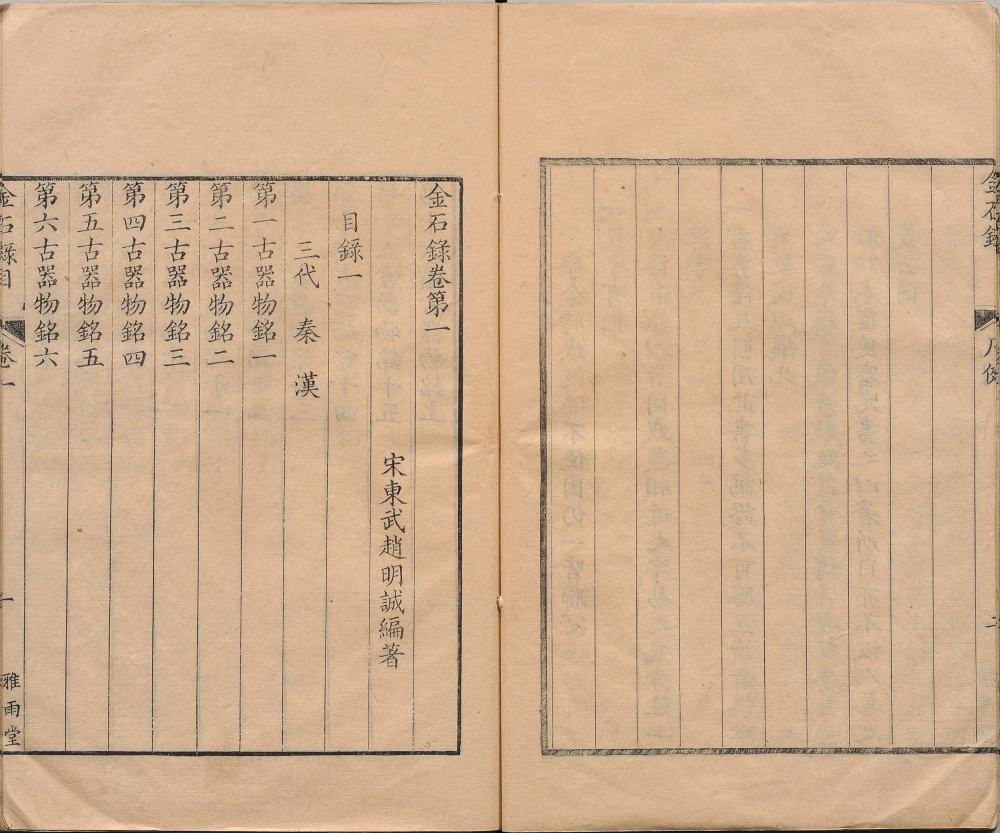 金石錄
金石錄卷第一
宋東武趙明誠編著
目錄一
三代 秦 漢
第一古器物銘一
第二古器物銘二
第三古器物銘三
第四古器物銘四
第五古器物銘五
第六古器物銘六
金石錄目 卷一
一
雅雨堂